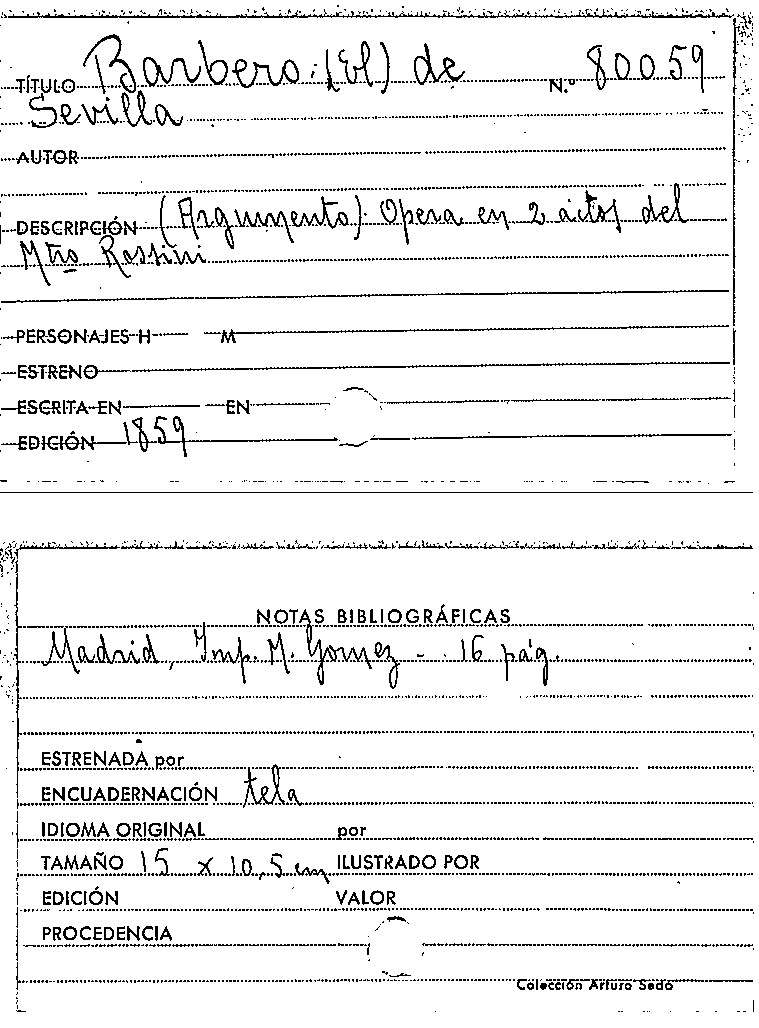 TÍTULO Barbero: (El) de N.º 80059
Sevilla
AUTOR
DESCRIPCIÓN (Argumento). Opera en 2 actos del
Mtro Rossini
PERSONAJES H M
ESTRENO
ESCRITA EN EN
EDICIÓN 1859
NOTAS BIBLIOGRÁFICAS
Madrid, Imp. M. Gomez - 16 pág.
ESTRENADA por
ENCUADERNACIÓN tela
IDIOMA ORIGINAL por
TAMAÑO 15 x 10,5 cm ILUSTRADO POR
EDICIÓN VALOR
PROCEDENCIA
Colección Arturo Sedó